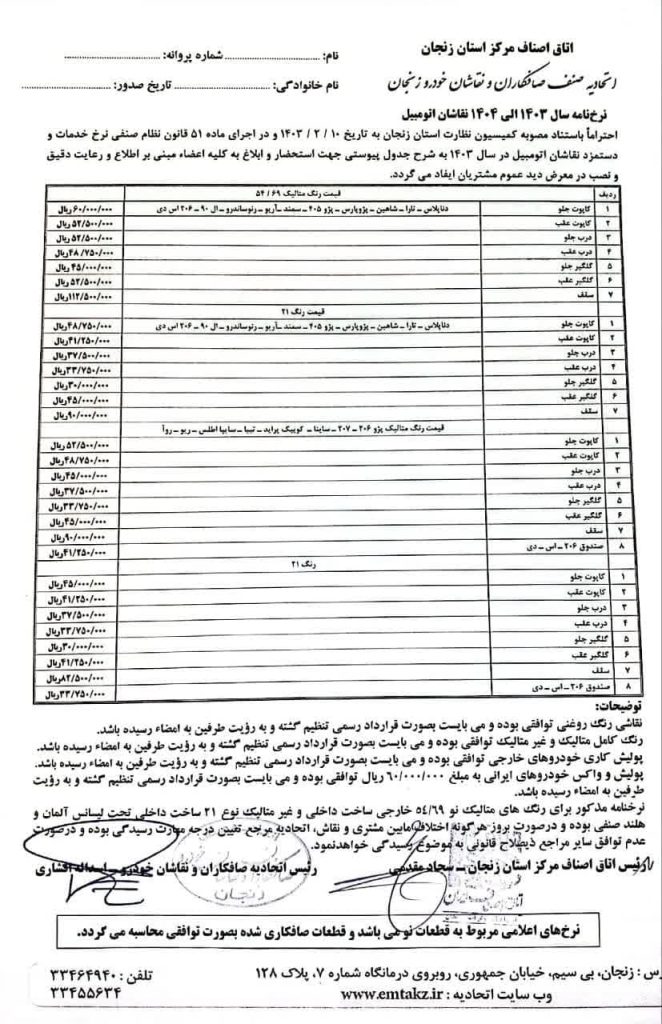 اتاق اصناف مرکز استان زنجان
اتحادیه صنف صافکاران و نقاشان خودرو زنجان
نام: ........................ شماره پروانه: ........................
نام خانوادگی: ........................ تاریخ صدور: ........................
نرخ‌نامه سال ۱۴۰۳ الی ۱۴۰۴ نقاشان اتومبیل
احتراماً باستناد مصوبه کمیسیون نظارت استان زنجان به تاریخ ۱۰ / ۲ / ۱۴۰۳ و در اجرای ماده ۵۱ قانون نظام صنفی نرخ خدمات و
دستمزد نقاشان اتومبیل در سال ۱۴۰۳ به شرح جدول پیوستی جهت استحضار و ابلاغ به کلیه اعضاء مبنی بر اطلاع و رعایت دقیق
و نصب در معرض دید عموم مشتریان ایفاد می گردد.
ردیف قیمت رنگ متالیک ۶۹ / ۵۴
۱ کاپوت جلو دناپلاس ـ تارا ـ شاهین ـ پژوپارس ـ پژو ۴۰۵ ـ سمند ـ آریو ـ رنوساندرو ـ ال ۹۰ ـ ۲۰۶ اس دی ۶۰/۰۰۰/۰۰۰ ریال
۲ کاپوت عقب ۵۲/۵۰۰/۰۰۰ریال
۳ درب جلو ۵۲/۵۰۰/۰۰۰ریال
۴ درب عقب ۴۸/۷۵۰/۰۰۰ریال
۵ گلگیر جلو ۴۵/۰۰۰/۰۰۰ریال
۶ گلگیر عقب ۵۲/۵۰۰/۰۰۰ریال
۷ سقف ۱۱۲/۵۰۰/۰۰۰ریال
قیمت رنگ ۲۱
۱ کاپوت جلو دناپلاس ـ تارا ـ شاهین ـ پژوپارس ـ پژو ۴۰۵ ـ سمند ـ آریو ـ رنوساندرو ـ ال ۹۰ ـ ۲۰۶ اس دی ۴۸/۷۵۰/۰۰۰ریال
۲ کاپوت عقب ۴۱/۲۵۰/۰۰۰ریال
۳ درب جلو ۳۷/۵۰۰/۰۰۰ریال
۴ درب عقب ۳۳/۷۵۰/۰۰۰ریال
۵ گلگیر جلو ۳۰/۰۰۰/۰۰۰ریال
۶ گلگیر عقب ۴۵/۰۰۰/۰۰۰ریال
۷ سقف ۹۰/۰۰۰/۰۰۰ریال
قیمت رنگ متالیک پژو ۲۰۶ ـ ۲۰۷ ـ ساینا ـ کوییک پراید ـ تیبا ـ سایپا اطلس ـ ریو ـ روآ
۱ کاپوت جلو ۵۲/۵۰۰/۰۰۰ریال
۲ کاپوت عقب ۴۸/۷۵۰/۰۰۰ریال
۳ درب جلو ۴۵/۰۰۰/۰۰۰ریال
۴ درب عقب ۳۷/۵۰۰/۰۰۰ریال
۵ گلگیر جلو ۳۳/۷۵۰/۰۰۰ریال
۶ گلگیر عقب ۴۵/۰۰۰/۰۰۰ریال
۷ سقف ۹۰/۰۰۰/۰۰۰ریال
۸ صندوق ۲۰۶ ـ اس ـ دی ۴۱/۲۵۰/۰۰۰ریال
رنگ ۲۱
۱ کاپوت جلو ۴۵/۰۰۰/۰۰۰ریال
۲ کاپوت عقب ۴۱/۲۵۰/۰۰۰ریال
۳ درب جلو ۳۷/۵۰۰/۰۰۰ریال
۴ درب عقب ۳۳/۷۵۰/۰۰۰ریال
۵ گلگیر جلو ۳۰/۰۰۰/۰۰۰ریال
۶ گلگیر عقب ۴۱/۲۵۰/۰۰۰ریال
۷ سقف ۸۲/۵۰۰/۰۰۰ریال
۸ صندوق ۲۰۶ ـ اس ـ دی ۳۳/۷۵۰/۰۰۰ریال
توضیحات:
نقاشی رنگ روغنی توافقی بوده و می بایست بصورت قرارداد رسمی تنظیم گشته و به رؤیت طرفین به امضاء رسیده باشد.
رنگ کامل متالیک و غیر متالیک توافقی بوده و می بایست بصورت قرارداد رسمی تنظیم گشته و به رؤیت طرفین به امضاء رسیده باشد.
پولیش کاری خودروهای خارجی توافقی بوده و می بایست بصورت قرارداد رسمی تنظیم گشته و به رؤیت طرفین به امضاء رسیده باشد.
پولیش و واکس خودروهای ایرانی به مبلغ ۶۰/۰۰۰/۰۰۰ ریال توافقی بوده و می بایست بصورت قرارداد رسمی تنظیم گشته و به رؤیت
طرفین به امضاء رسیده باشد.
نرخنامه مذکور برای رنگ های متالیک نو ۵۴/۶۹ خارجی ساخت داخلی و غیر متالیک نوع ۲۱ ساخت داخلی تحت لیسانس آلمان و
هلند صنفی بوده و درصورت بروز هرگونه اختلاف مابین مشتری و نقاش، اتحادیه مرجع تعیین درجه مهارت رسیدگی بوده و درصورت
عدم توافق سایر مراجع ذیصلاح قانونی به موضوع رسیدگی خواهدنمود.
رئیس اتاق اصناف مرکز استان زنجان ـ سجاد مقدمی رئیس اتحادیه صافکاران و نقاشان خودرو ـ اسداله افشاری
زنجان
نرخ‌های اعلامی مربوط به قطعات نو می باشد و قطعات صافکاری شده بصورت توافقی محاسبه می گردد.
رس: زنجان، بی سیم، خیابان جمهوری، روبروی درمانگاه شماره ۷، پلاک ۱۲۸ تلفن: ۳۳۴۶۴۹۴۰
وب سایت اتحادیه: www.emtakz.ir ۳۳۴۵۵۶۳۴